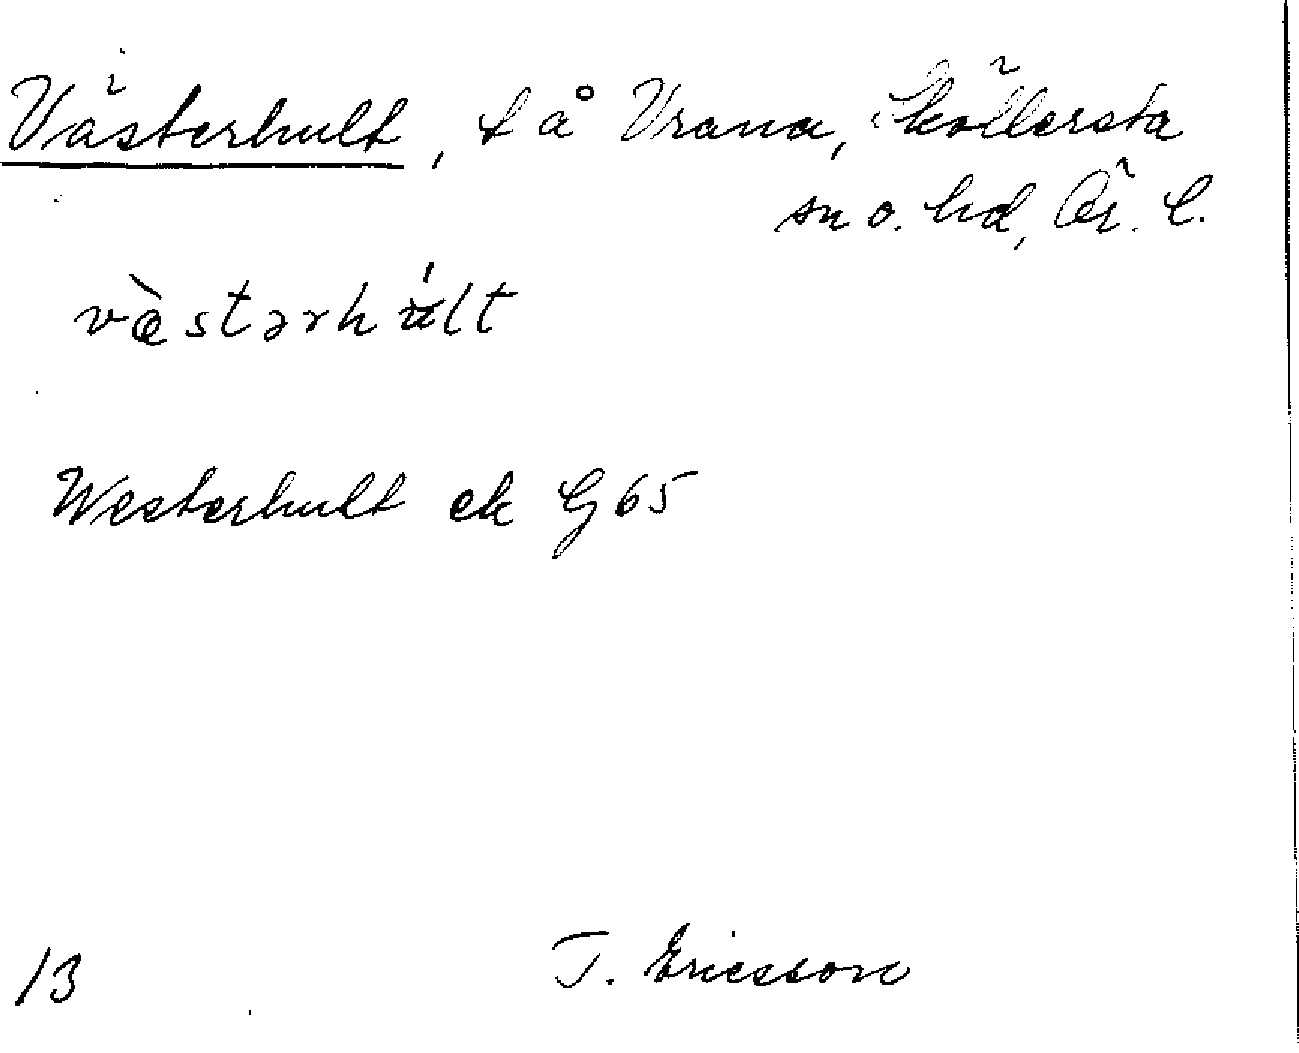 Västerhult, t å Vrana, Sköllersta
sn o. hd, Ör. l.
væ̀stərhúlt
Westerhult ek G65
13 T. Ericsson